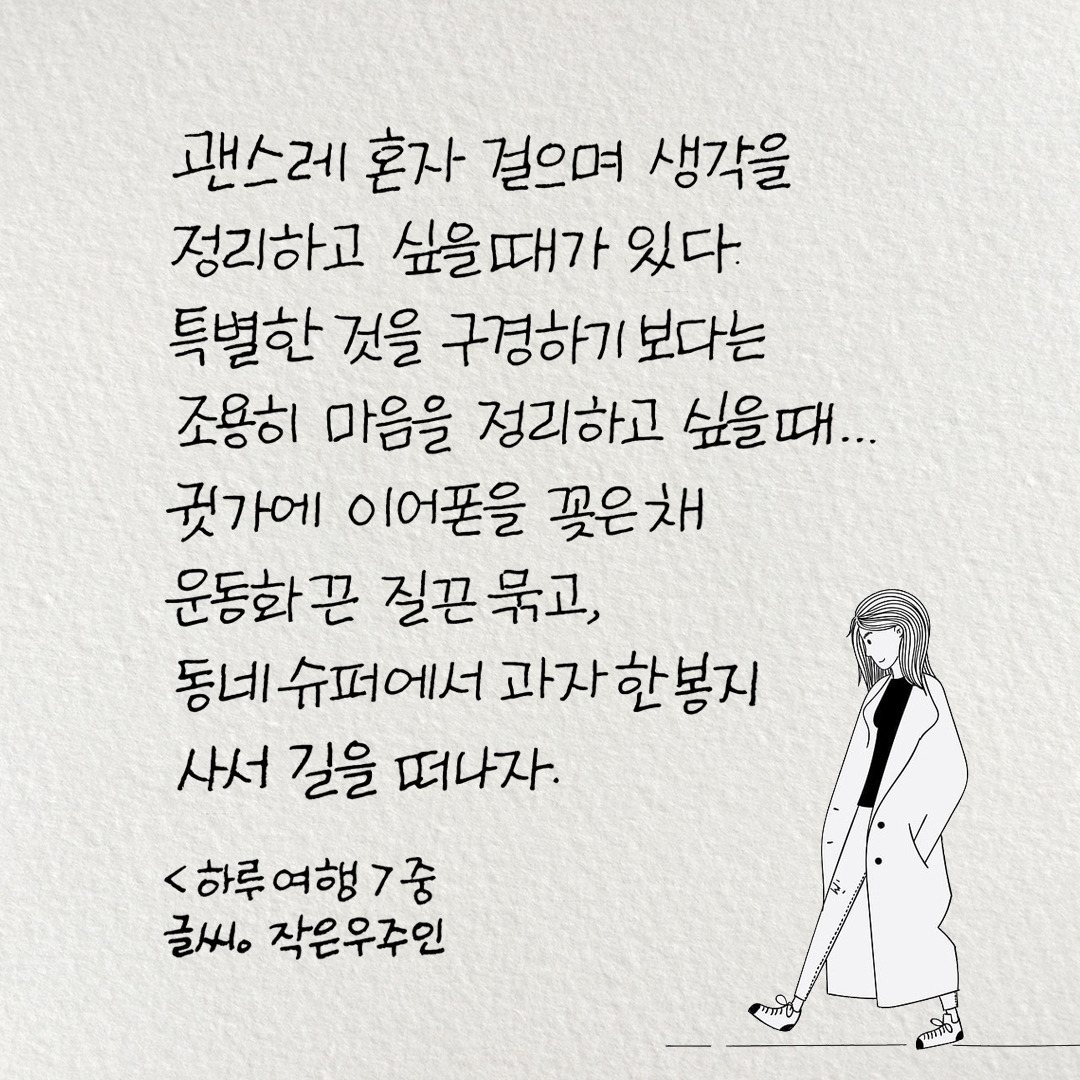 괜스레 혼자 걸으며 생각을
정리하고 싶을 때가 있다.
특별한 것을 구경하기보다는
조용히 마음을 정리하고 싶을 때...
귓가에 이어폰을 꽂은 채
운동화 끈 질끈 묶고,
동네 슈퍼에서 과자 한 봉지
사서 길을 떠나자.
<하루 여행> 중
글씨。작은우주인